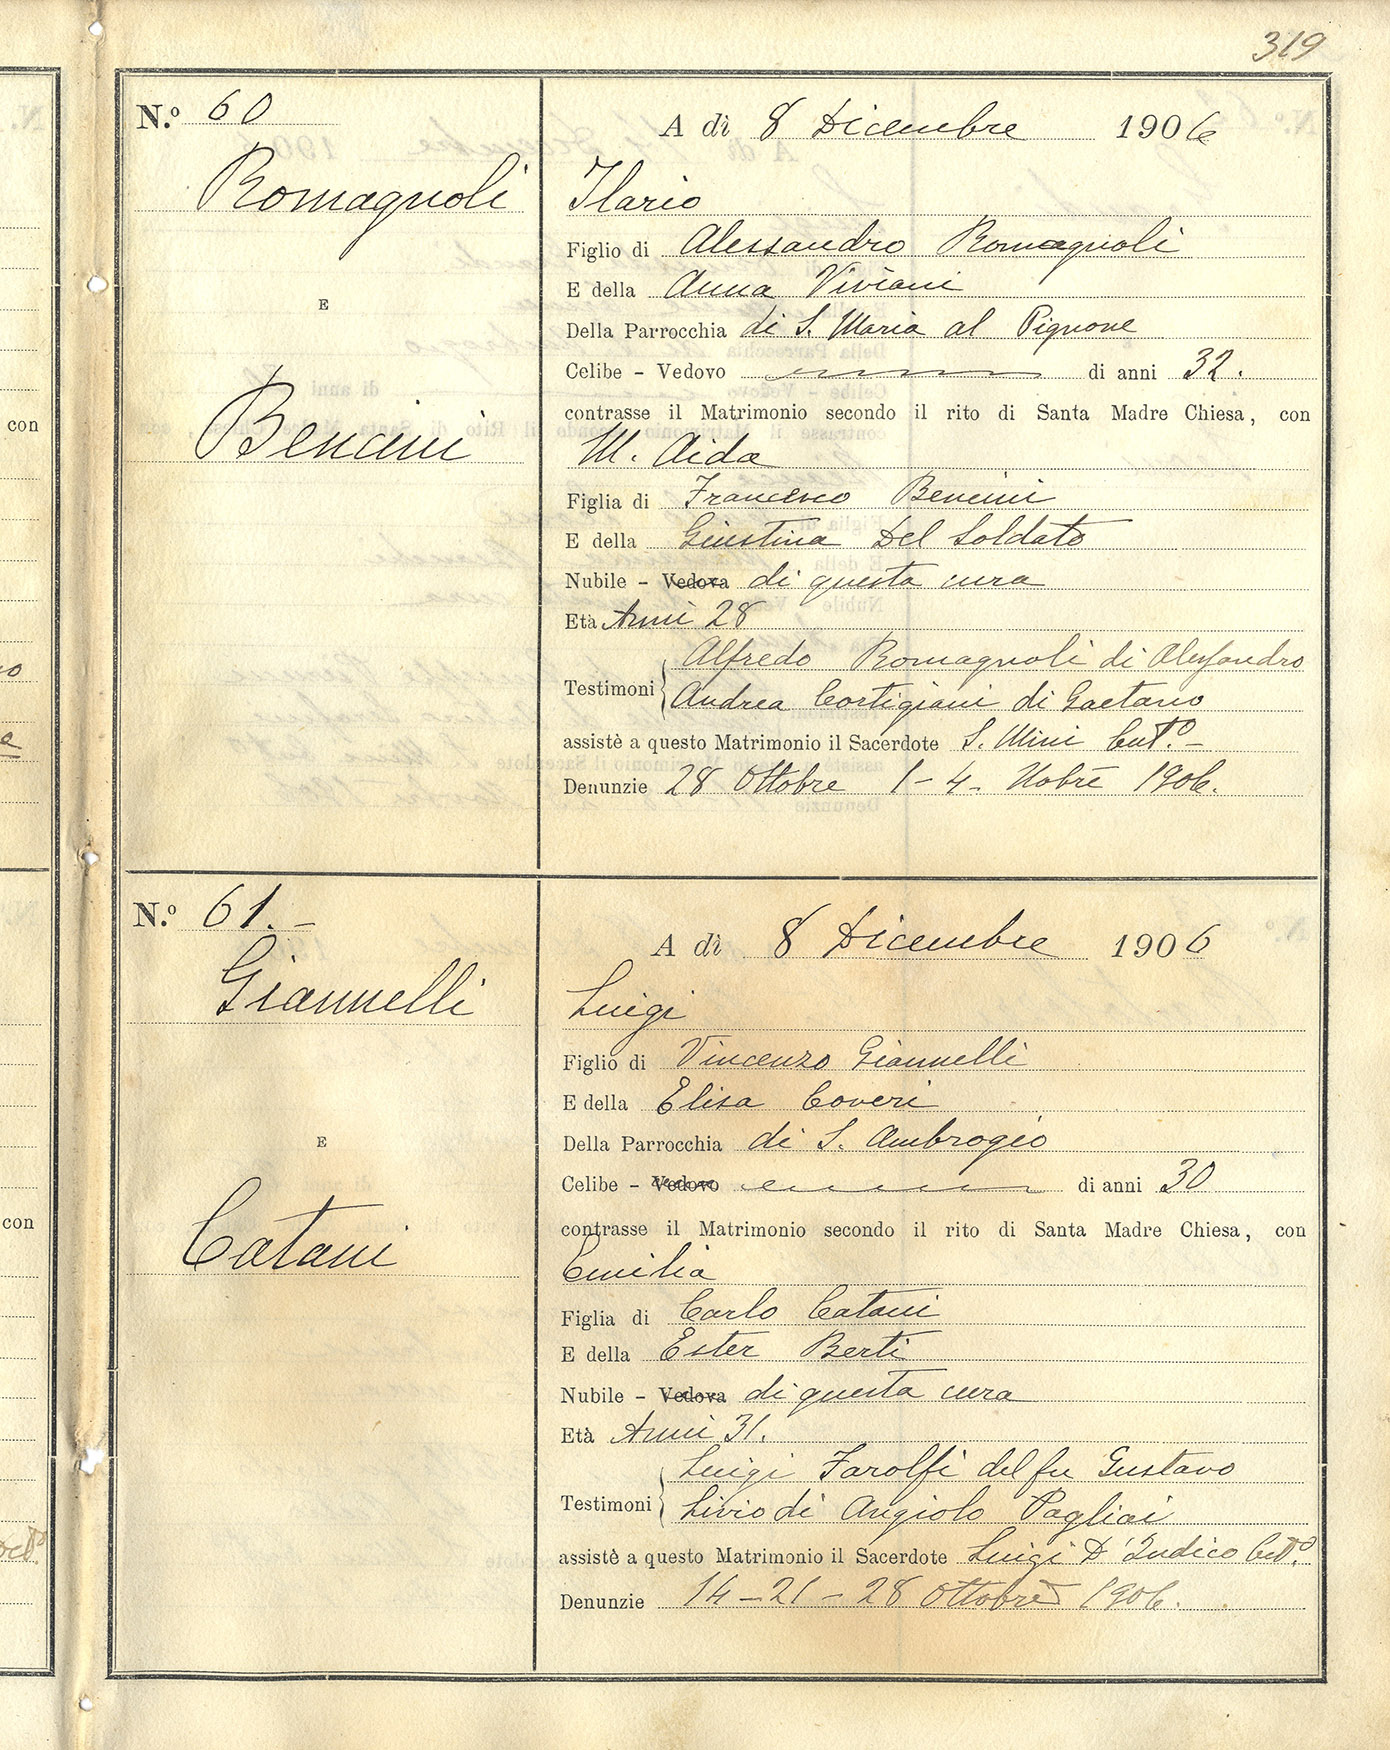 319
N.º 60
A dì 8 Dicembre 1906
Romagnoli
Ilario
Figlio di Alessandro Romagnoli
E della Anna Viviani
E
Della Parrocchia di S. Maria al Pignone
Celibe - Vedovo di anni 32.
contrasse il Matrimonio secondo il rito di Santa Madre Chiesa, con
Bencini
M. Aida
Figlia di Francesco Bencini
E della Giustina Del Soldato
Nubile - Vedova di questa cura
Età Anni 28
Alfredo Romagnoli di Alessandro
Testimoni
Andrea Cortigiani di Gaetano
assistè a questo Matrimonio il Sacerdote S. Mini Cut.º -
Denunzie 28 Ottobre 1 - 4 - Nobre 1906.
N.º 61. -
A dì 8 Dicembre 1906
Giannelli
Luigi
Figlio di Vincenzo Giannelli
E della Elisa Coveri
E
Della Parrocchia di S. Ambrogio
Celibe - Vedovo di anni 30
contrasse il Matrimonio secondo il rito di Santa Madre Chiesa, con
Catani
Emilia
Figlia di Carlo Catani
E della Ester Berti
Nubile - Vedova di questa cura
Età Anni 31.
Luigi Farolfi del fu Gustavo
Testimoni
Livio di Angiolo Pagliai
assistè a questo Matrimonio il Sacerdote Luigi D'Indico
Denunzie 14 - 21 - 28 Ottobre 1906.
con
con